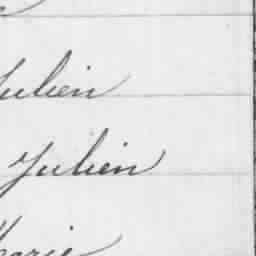 Julien
Julien
Marie